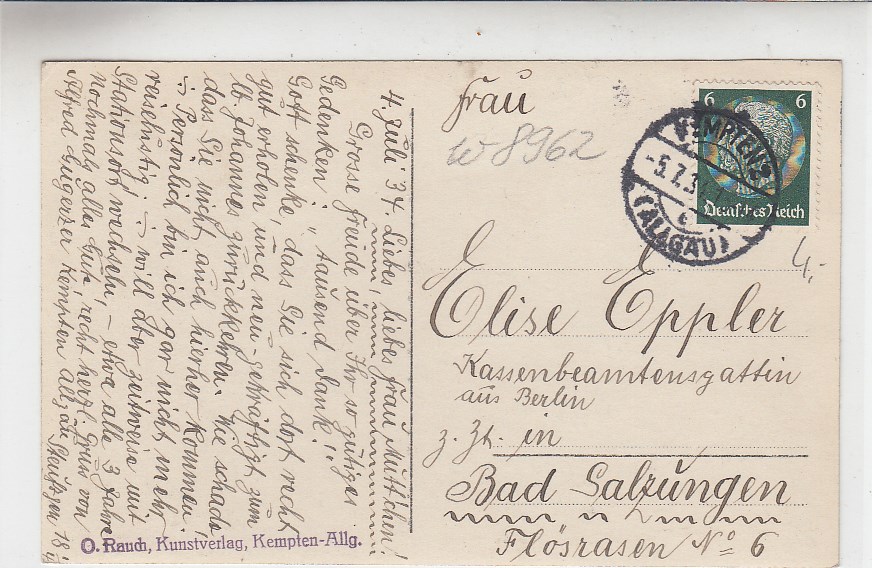 4. Juli 34. Liebes, liebes Frau Muttchen!
Grosse Freude über Ihr so gütiges
Gedenken; „tausend Dank“!
Gott schenke, dass Sie sich dort recht
gut erholen und neu-gekräftigt zum
lb. Johannes zurückkehren. Wie schade,
dass Sie nicht auch hierher kommen!
Persönlich bin ich gar nicht mehr
reiselustig. – will aber zeitweise mit
Stationsort wechseln, – etwa alle 3 Jahre
Nochmals alles Gute, recht herzl. Grüss von
Alfred Kempten Allgäu 18
O. Rauch, Kunstverlag, Kempten-Allg.
Frau
W 8962
6 6
Deutsches Reich
KEMPTEN 2
-5.7.34
(ALLGÄU)
4,-
Elise Eppler
Kassenbeamtensgattin
aus Berlin
z. Zt. in
Bad Salzungen
Flösrasen No 6